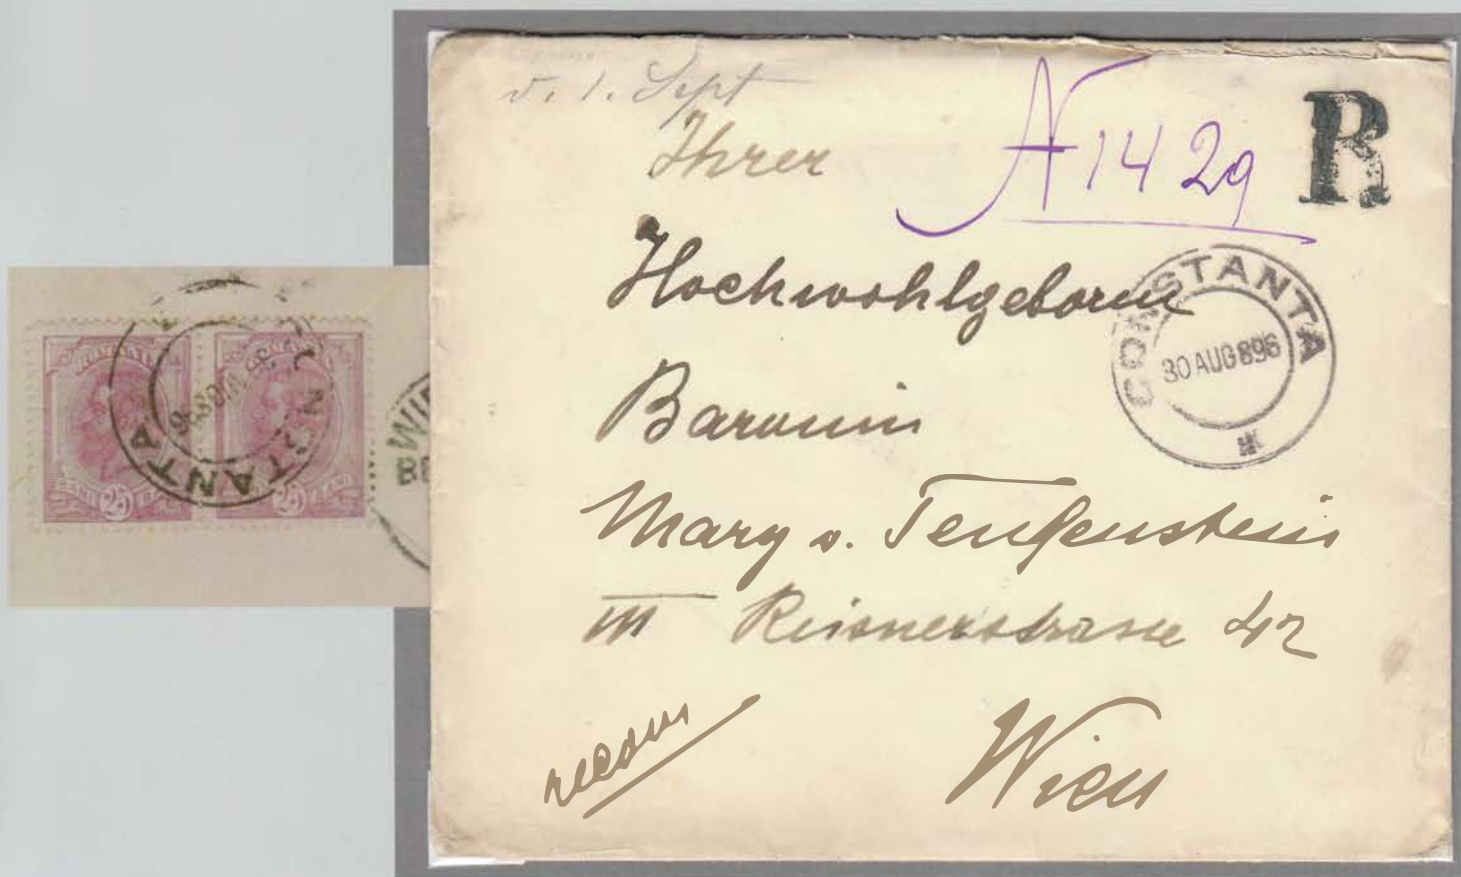 v. 1. Sept
Ihrer
N 1429
R
Hochwohlgeborn
CONSTANTA
30 AUG 896
Baronin
Mary v. Teuffenstein
III Reisnerstrasse 42
Wien
recom
CONSTANTA
25
25
WIEN